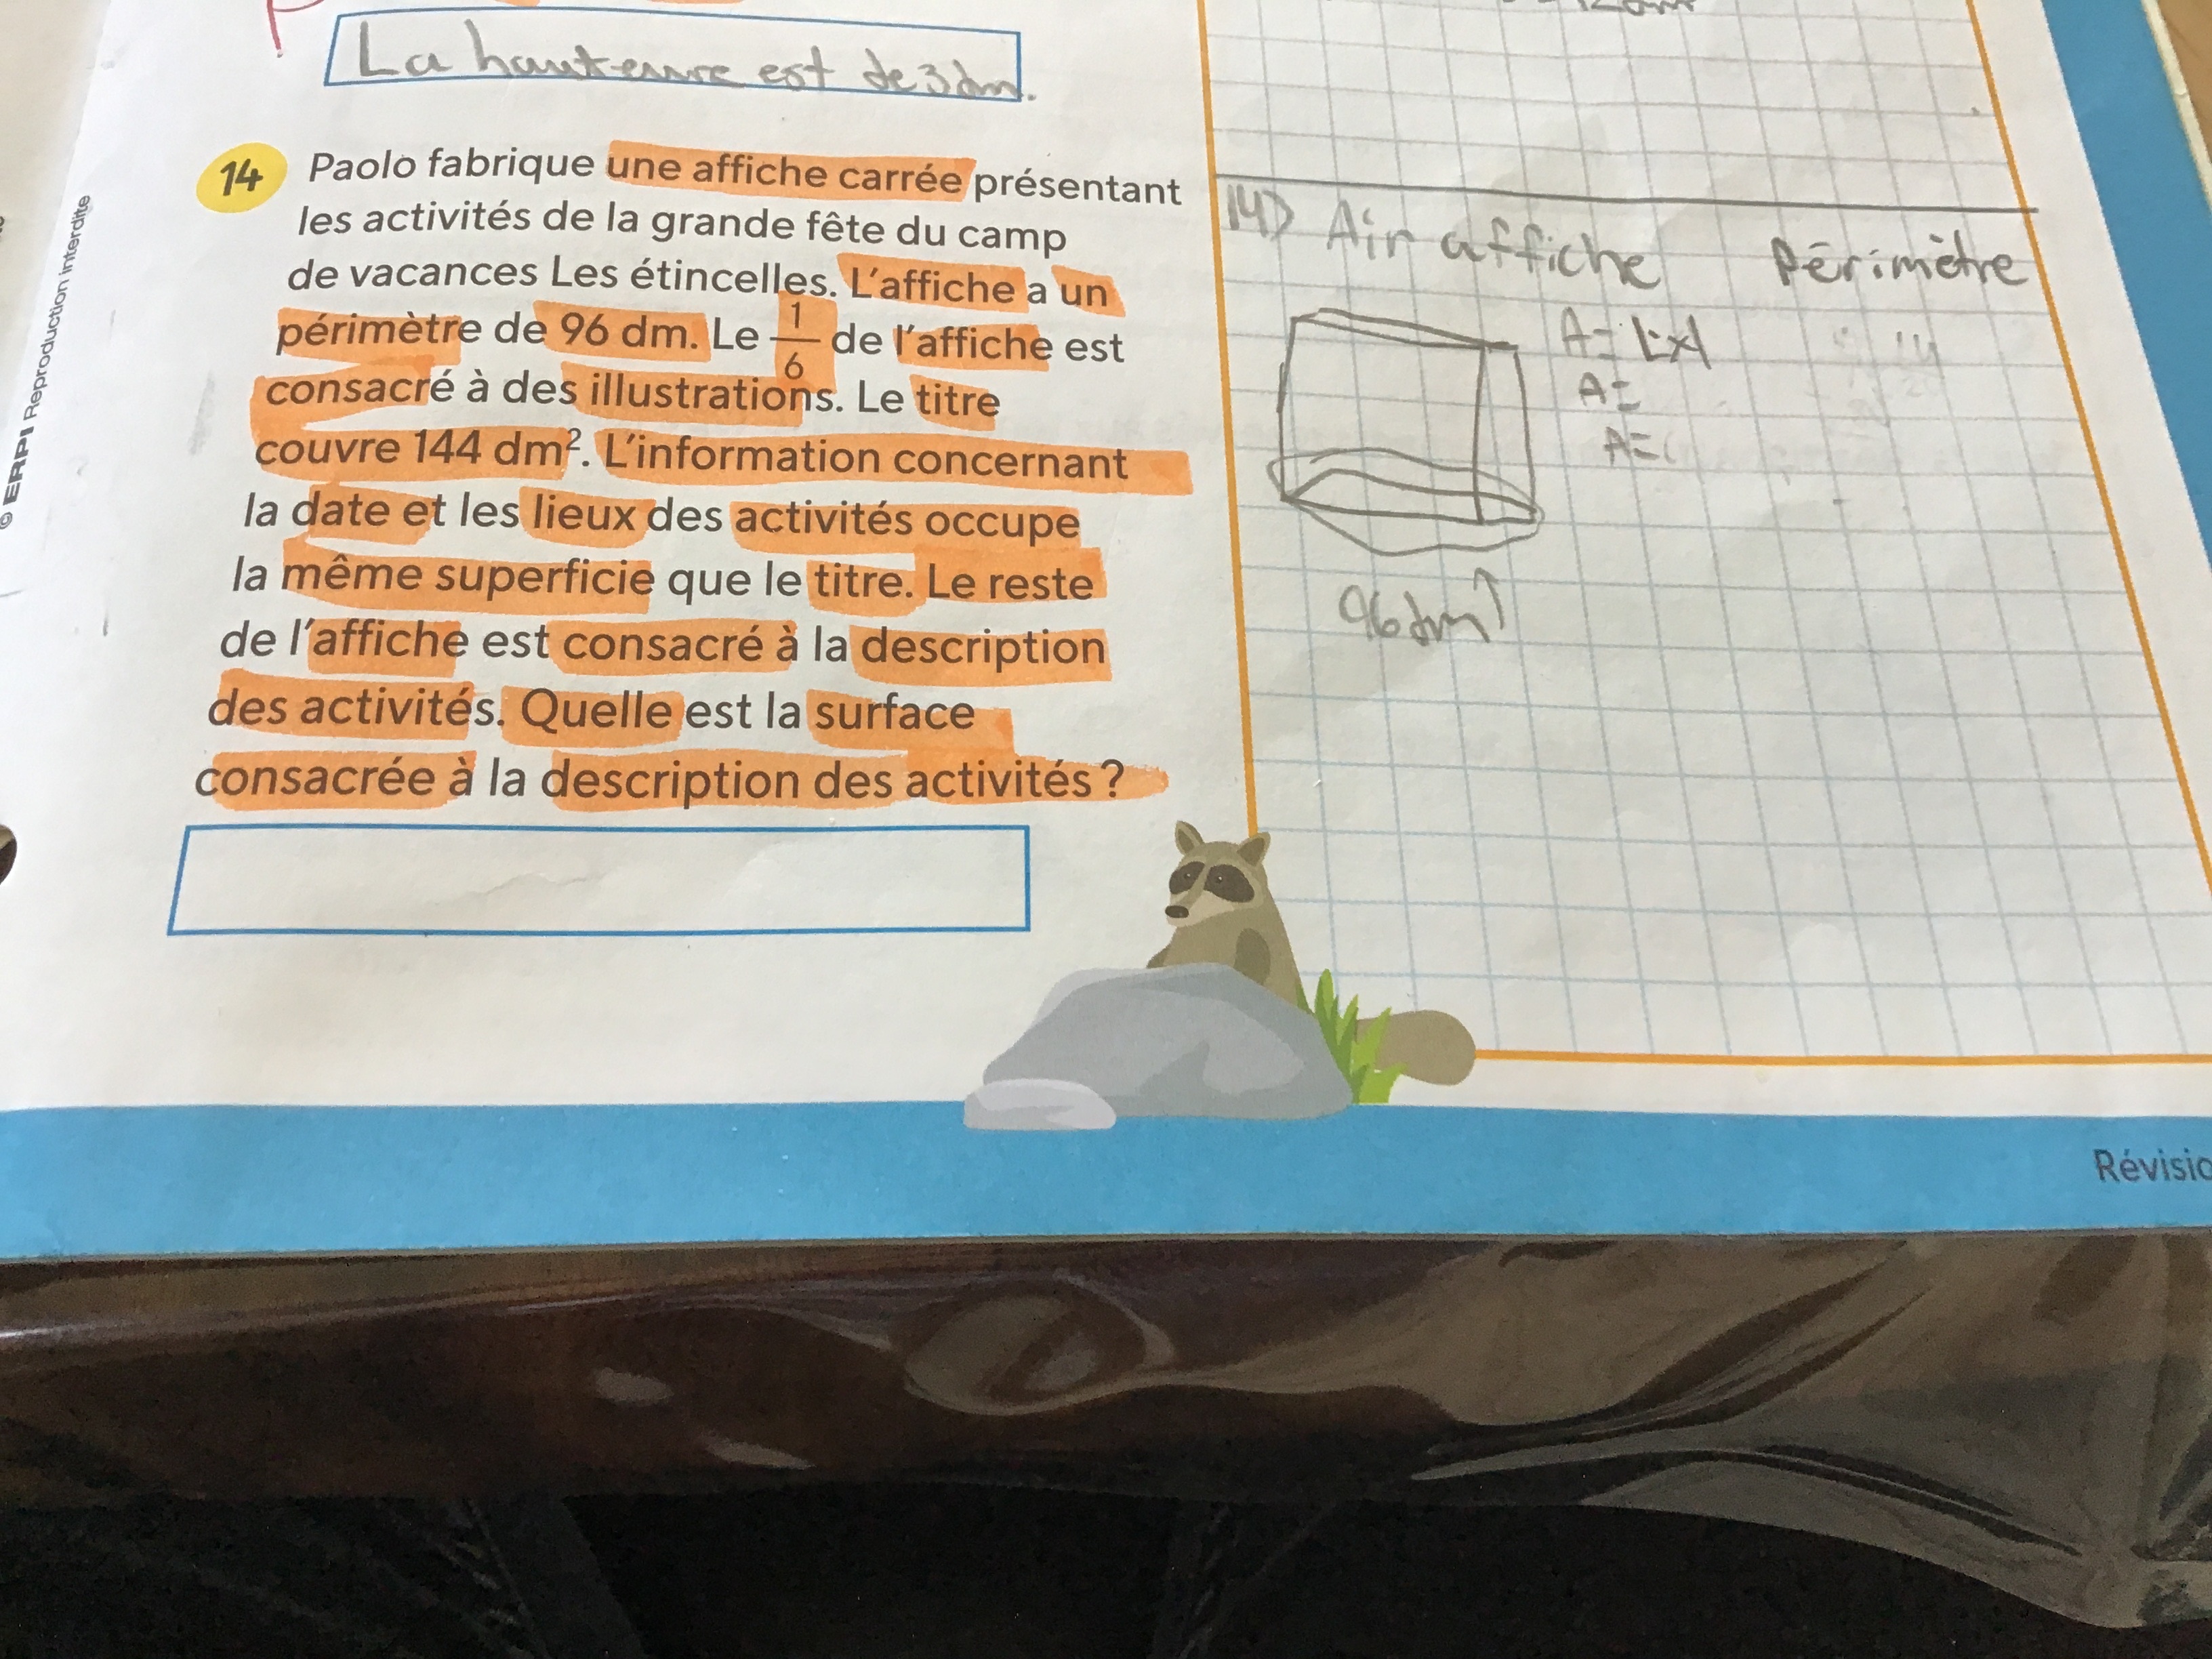 La hauteurre est de 3 dm.
14 Paolo fabrique une affiche carrée présentant
les activités de la grande fête du camp
de vacances Les étincelles. L'affiche a un
périmètre de 96 dm. Le 1/6 de l'affiche est
consacré à des illustrations. Le titre
couvre 144 dm². L'information concernant
la date et les lieux des activités occupe
la même superficie que le titre. Le reste
de l'affiche est consacré à la description
des activités. Quelle est la surface
consacrée à la description des activités ?
14) Air affiche Périmètre
A= L×l
A=
A=
96 dm
© ERPI Reproduction interdite